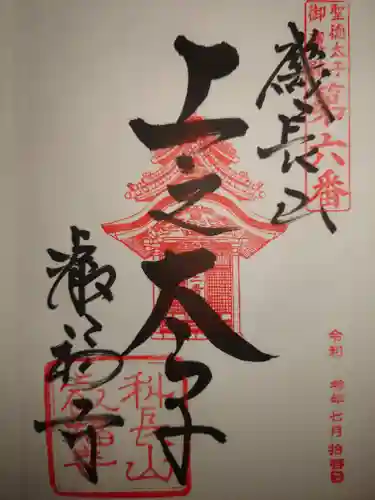 聖徳太子
御
第六番
磯長山
上之太子
叡福寺
科長山
叡福寺
令和 年七月